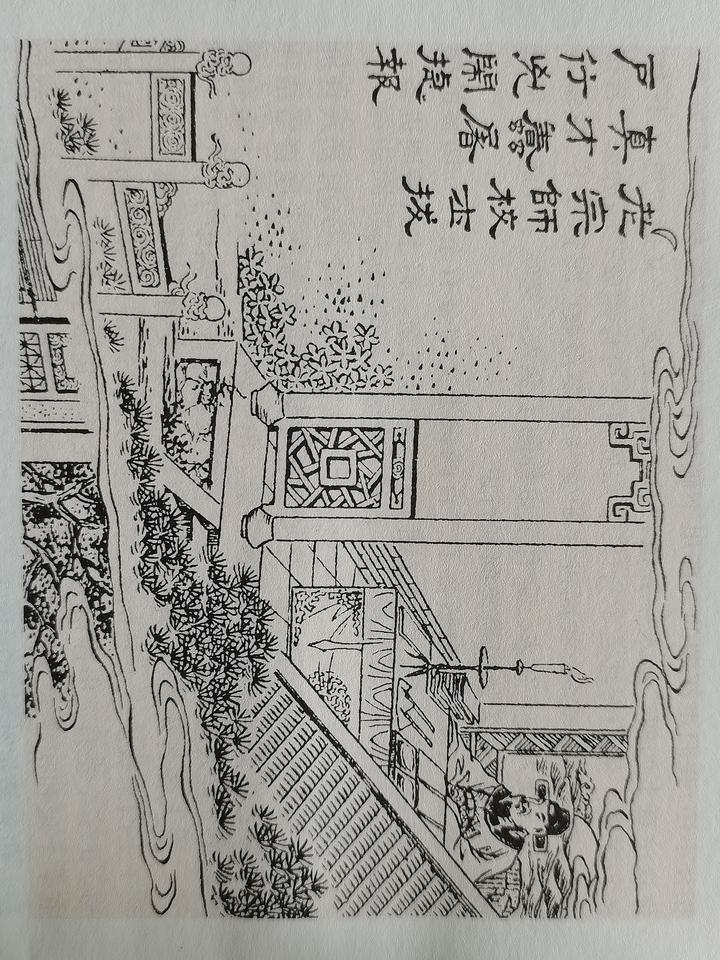 老宗師校士拔
真才屠
戶行兇鬧捷報